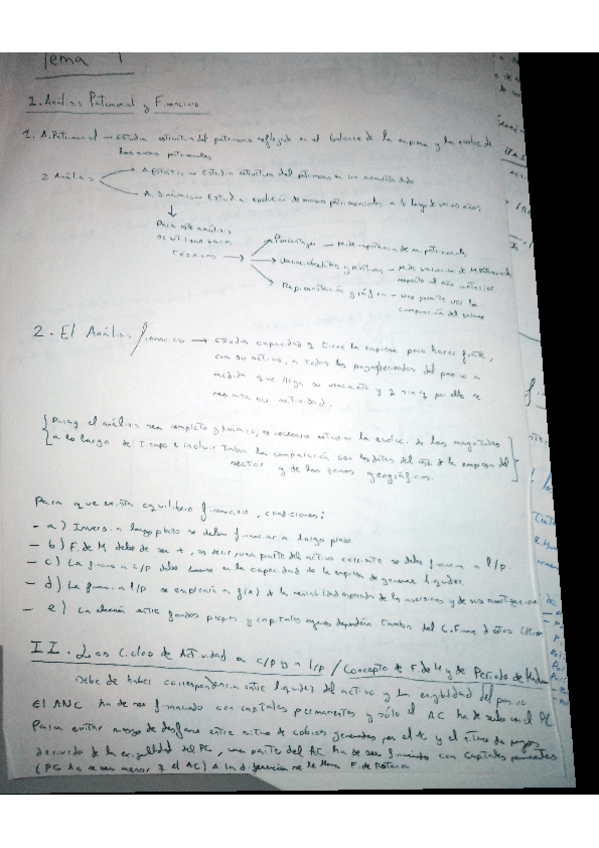 Tema 1
1. Análisis Patrimonial y Financiero
1. A. Patrimonial — Estudia estructura del patrimonio reflejado en el balance de la empresa y la evoluc. de
las masas patrimoniales
2 Análisis
A. Estático — Estudia estructura del patrimonio en un momento dado
A. Dinámico — Estudia evolución de masas patrimoniales a lo largo de varios años
Para este análisis
se utilizan varias
técnicas
Porcentajes — Mide importancia de m. patrimoniales
Variac. absolutas y relativas — Mide variación de M. Patrimoniales
respecto al año anterior
Representación gráfica — nos permite ver la
composición del balance
2. El Análisis financiero → estudia capacidad q tiene la empresa para hacer frente,
con su activo, a todos los pagos derivados del pasivo a
medida que llega su vencimiento y q sin q por ello se
resienta su actividad.
Para q el análisis sea completo y dinámico, es necesario estudiar la evoluc. de las magnitudes
a lo largo de tiempo e incluir también la comparación con los datos del resto de la empresa del
sector y de las zonas geográficas.
Para que exista equilibrio financiero, condiciones:
- a) Inversión largo plazo se deben financiar a largo plazo
- b) F. de M debe de ser +, es decir, una parte del activo corriente se debe financiar a l/p.
- c) La financ. a c/p debe basarse en la capacidad de la empresa de generar liquidez.
- d) La financ. a l/p se empleará en f(x) de la rentabilidad esperada de las inversiones y de sus
- e) La elección entre fondos propios y capitales ajenos dependerá también del C. Financ. d estos últimos
II. Los Ciclos de Actividad a c/p y a l/p / Concepto de F. de M y de Periodo de Madura
Debe de haber correspondencia entre liquidez del activo y la exigibilidad del pasivo
El ANC ha de ser financiado con capitales permanentes y sólo el AC ha de serlo con el PC
Para evitar riesgo de desfase entre ritmo de cobros generados por el AC y el ritmo de pagos
derivado de la exigibilidad del PC, una parte del AC ha de ser financiado con capitales permanentes
(PC ha de ser menor q el AC) A la diferencia se le llama F. de Rotación